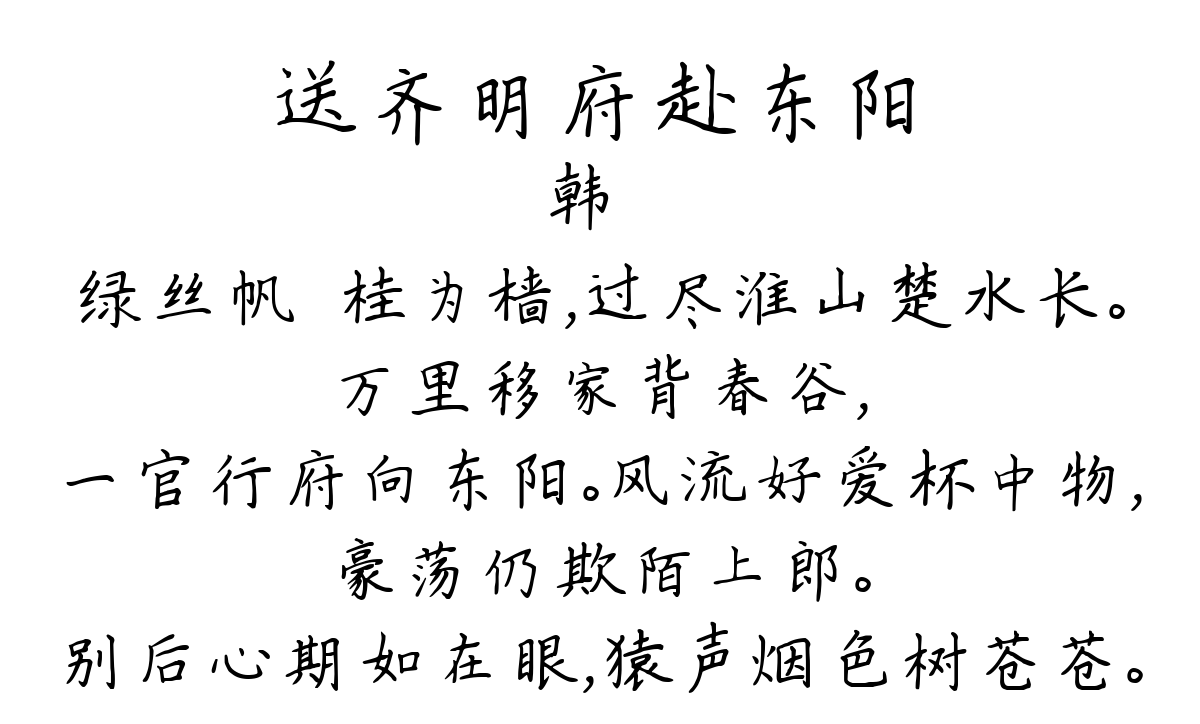 送齐明府赴东阳
韩
绿丝帆 桂为樯,过尽淮山楚水长。
万里移家背春谷,
一官行府向东阳。风流好爱杯中物,
豪荡仍欺陌上郎。
别后心期如在眼,猿声烟色树苍苍。